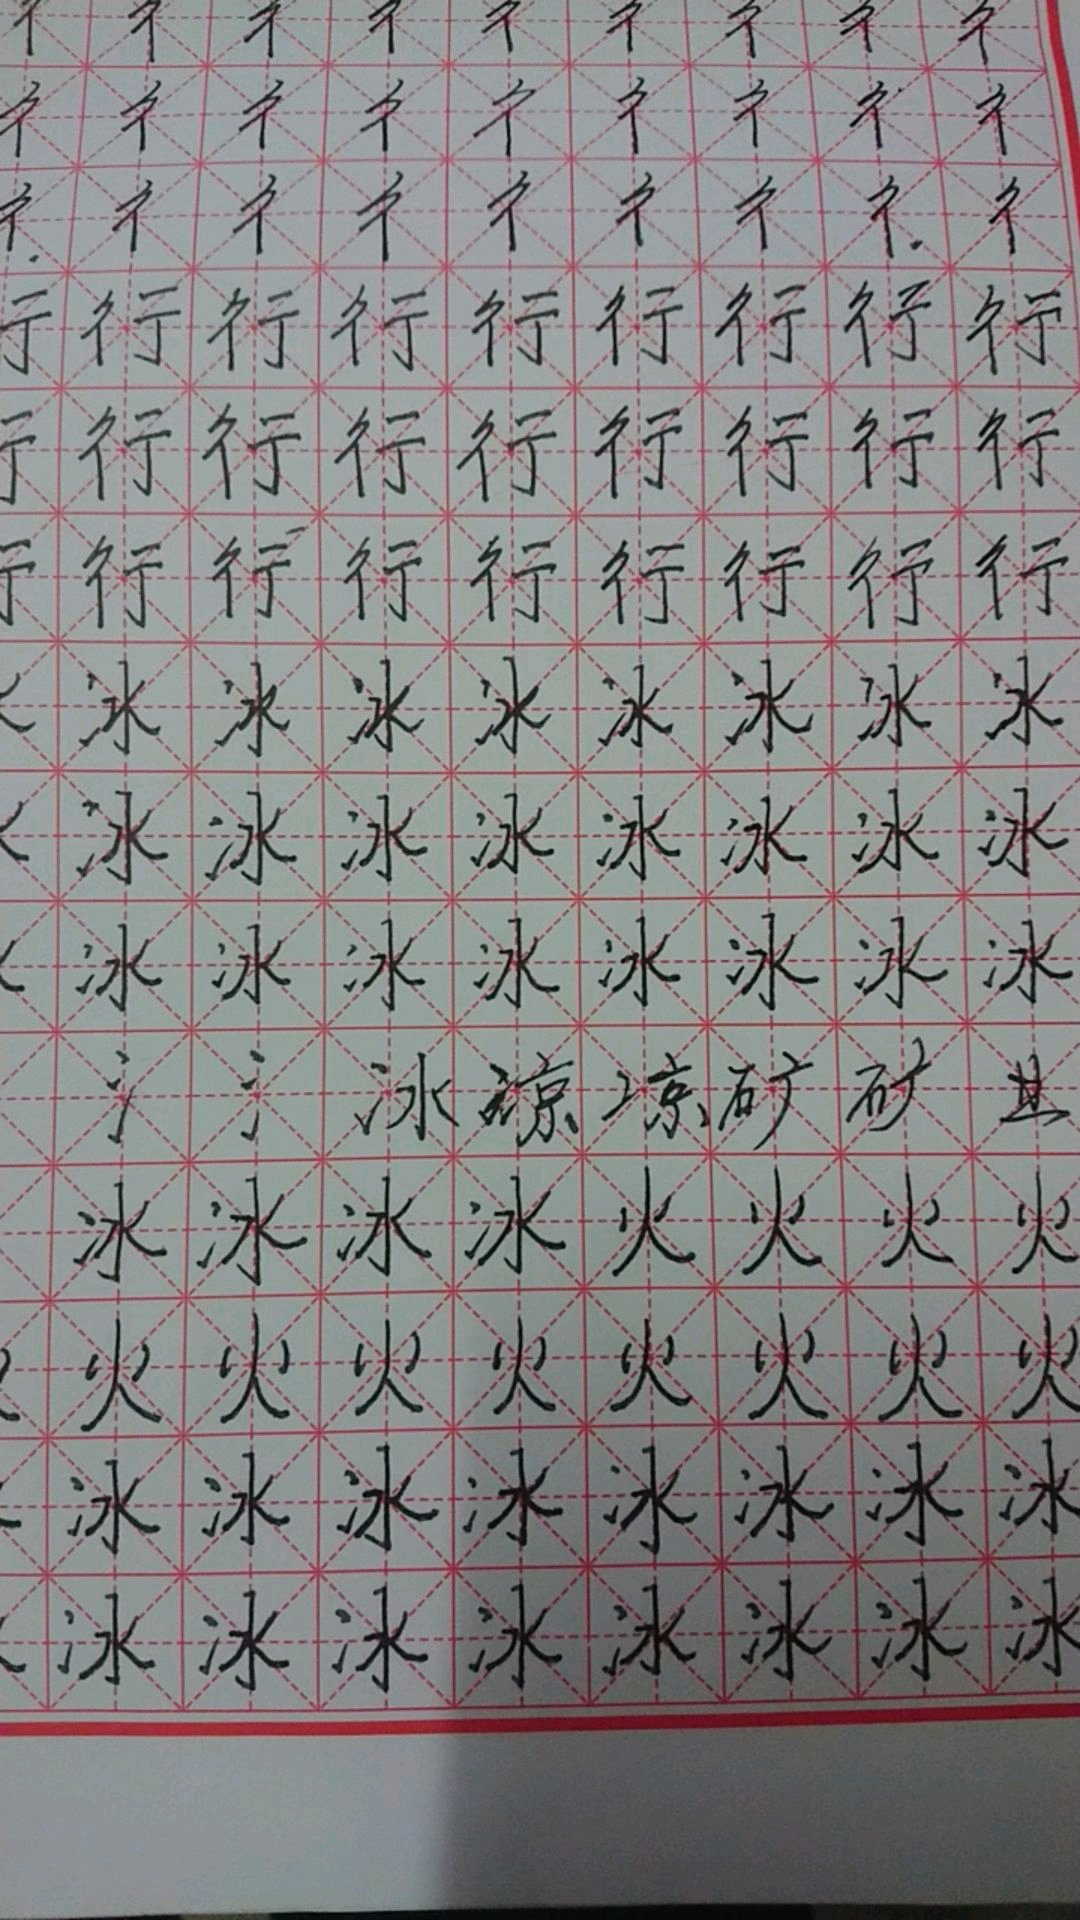 彳彳彳彳彳彳彳彳彳
彳彳彳彳彳彳彳彳彳
彳彳彳彳彳彳彳彳彳
行行行行行行行行
行行行行行行行行
行行行行行行行行
冰冰冰冰冰冰冰冰
冰冰冰冰冰冰冰冰
冰冰冰冰冰冰冰冰
氵氵冰凉凉矿矿
冰冰冰冰火火火火
火火火火火火火火
冰冰冰冰冰冰冰冰
冰冰冰冰冰冰冰冰